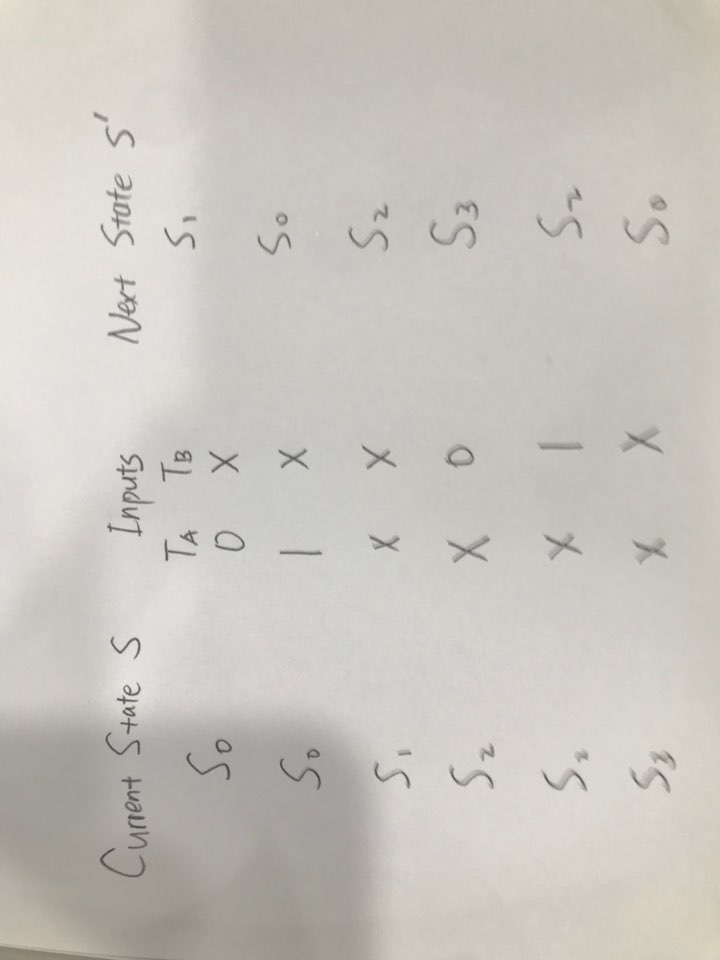 Current State S Inputs Next State S'
TA TB
S0 0 X S1
S0 1 X S0
S1 X X S2
S2 X 0 S3
S2 X 1 S2
S3 X X S0